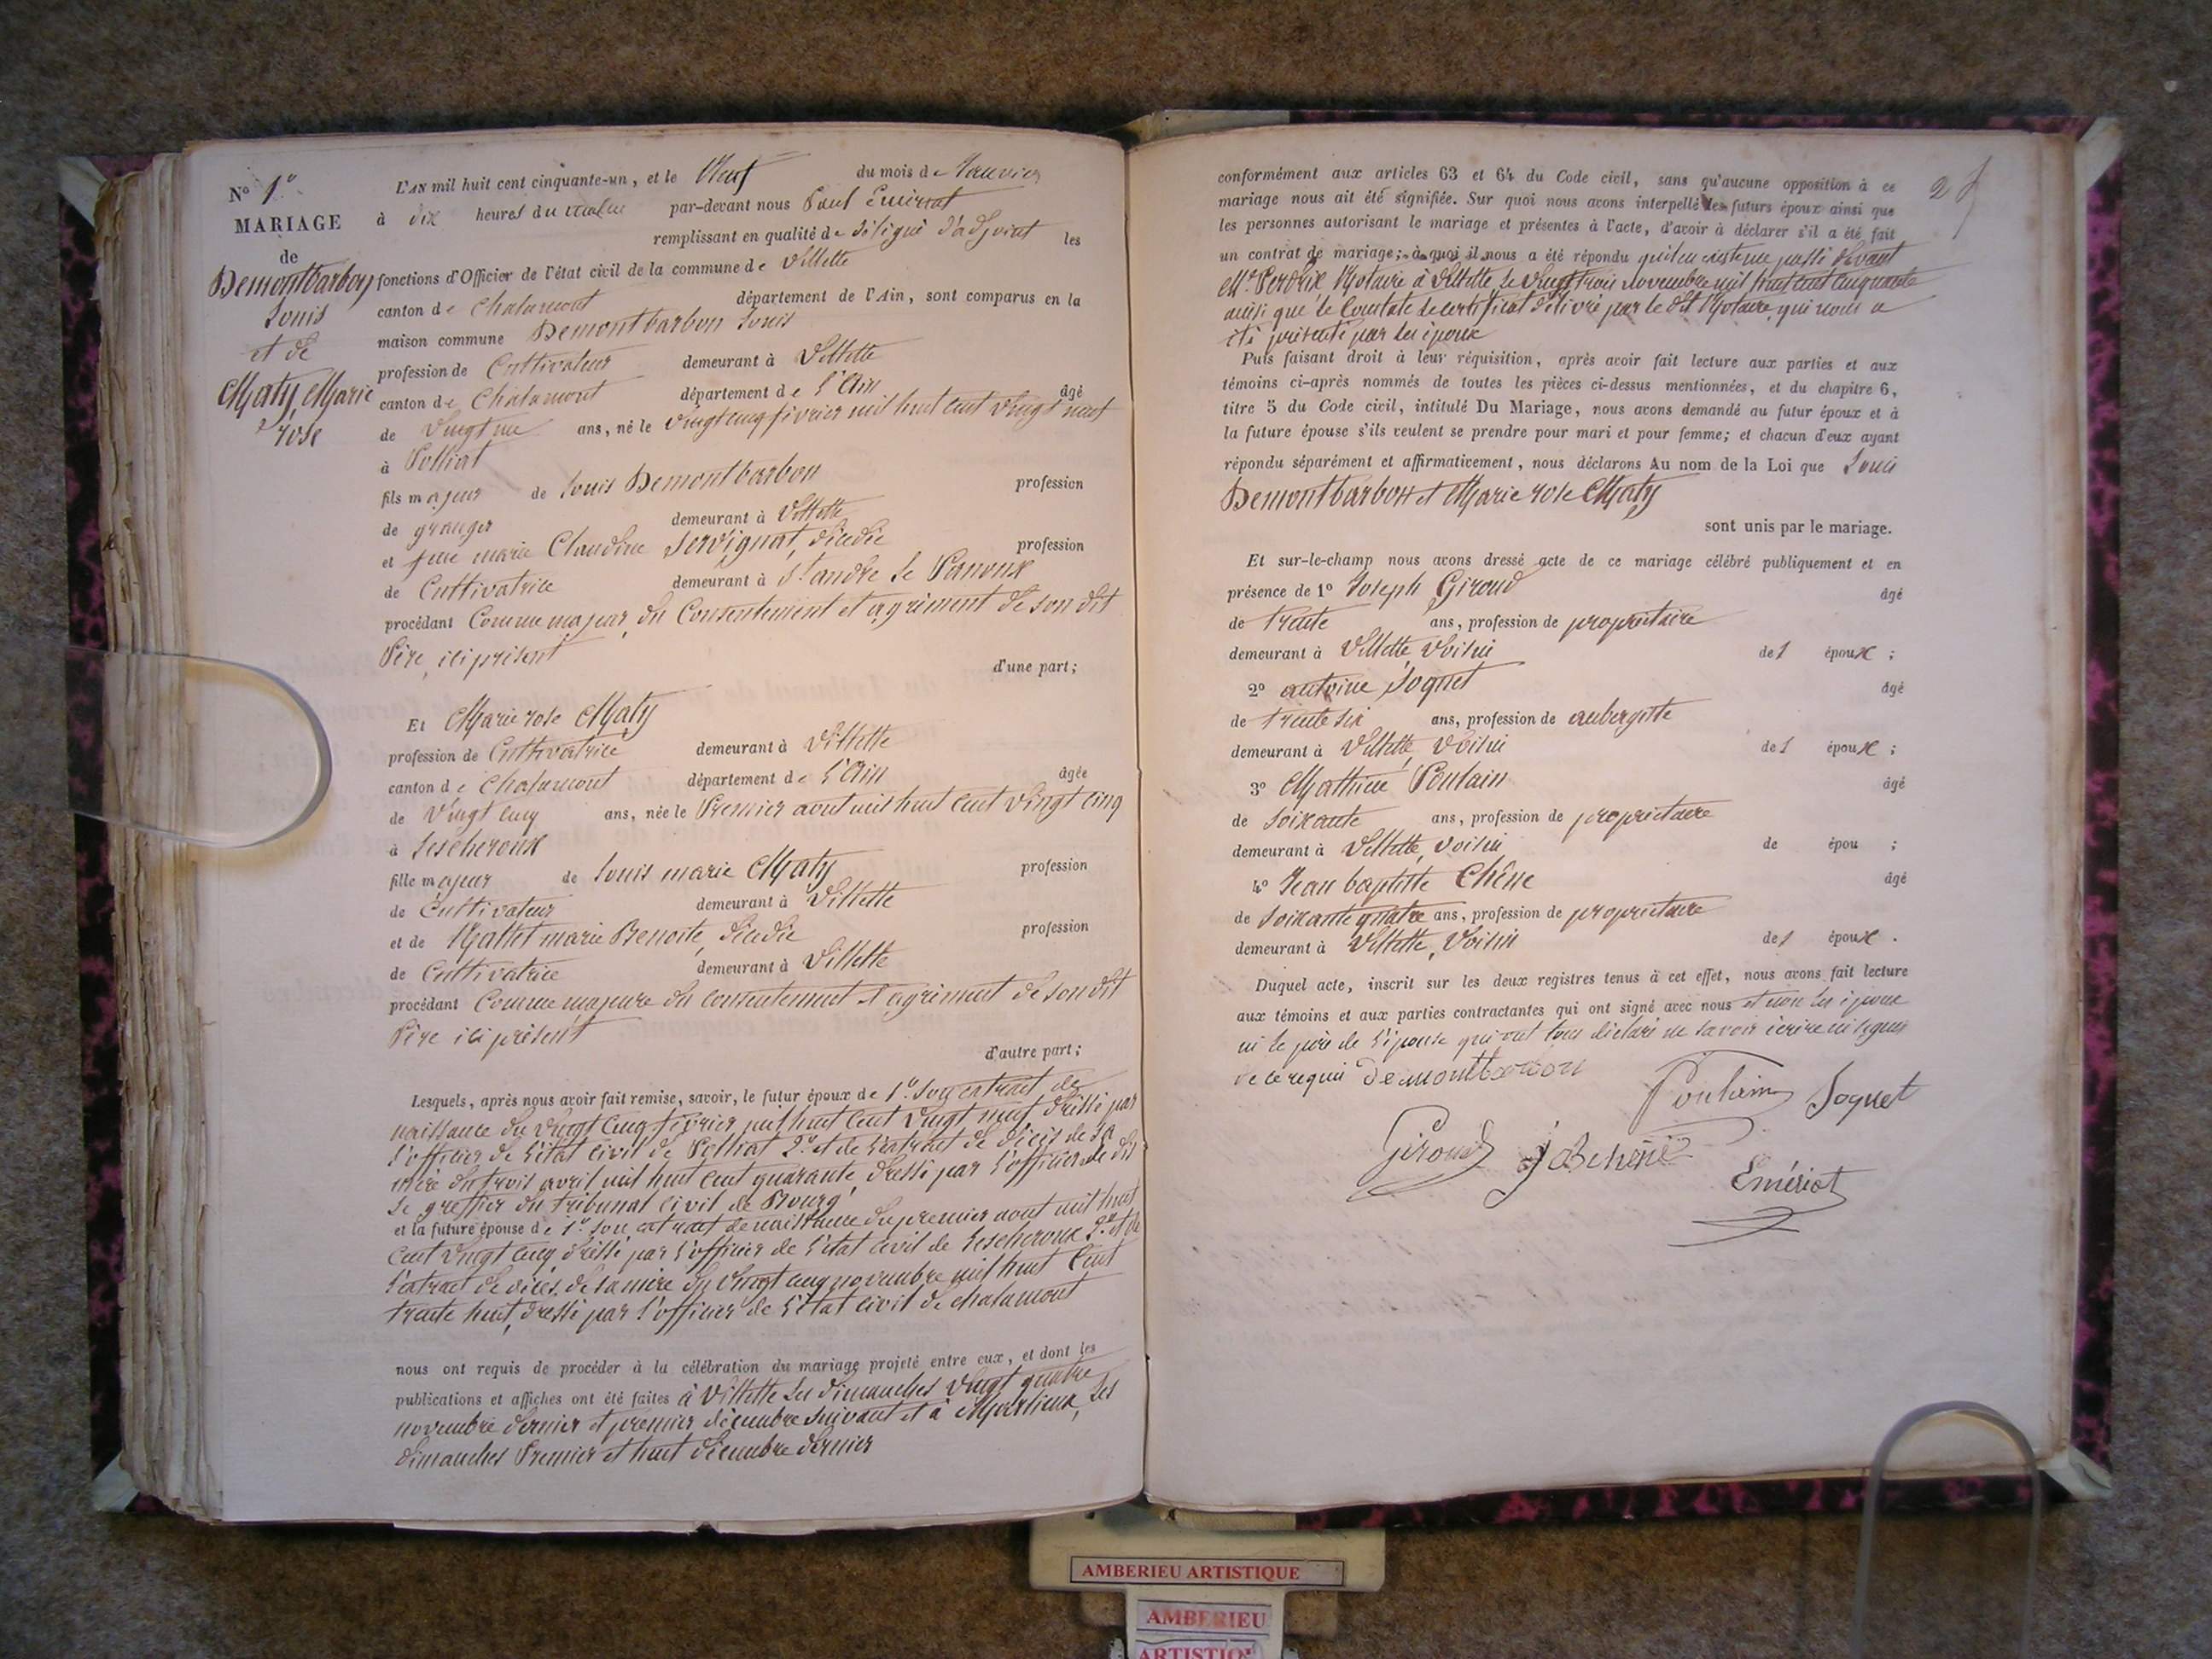 N° 1°
MARIAGE
de
Demontbarbon
Louis
et de
Maty, Marie
rose
L'AN mil huit cent cinquante-un, et le Neuf du mois de Janvier
à dix heures du matin par-devant nous Paul
remplissant en qualité de délégué d'adjoint les
fonctions d'Officier de l'état civil de la commune de Villette
canton de Chalamont département de l'Ain, sont comparus en la
maison commune Demontbarbon Louis
profession de Cultivateur demeurant à Villette
canton de Chalamont département de l'Ain âgé
de Vingt un ans, né le vingt cinq février mil huit cent vingt neuf
à Polliat
fils majeur de Louis Demontbarbon profession
de granger demeurant à Villette
et feue marie Claudine Servignat, décédée profession
de Cultivatrice demeurant à St andré le Panoux
procédant Comme majeur, du Consentement et agrément de son dit
Père, ici présent d'une part;
Et Marie rose Maty
profession de Cultivatrice demeurant à Villette
canton de Chalamont département de l'Ain âgée
de Vingt cinq ans, née le Premier aout mil huit cent vingt cinq
à Lescheroux
fille majeur de Louis marie Maty profession
de Cultivateur demeurant à Villette
et de Nallet marie Benoite, décédée profession
de Cultivatrice demeurant à Villette
procédant Comme majeure du consentement et agrément de son dit
Père ici présent d'autre part;
Lesquels, après nous avoir fait remise, savoir, le futur époux de 1° son extrait de
naissance du vingt cinq février mil huit cent vingt neuf dressé par
l'officier de l'état civil de Polliat 2° et de l'extrait de décès de sa
mère du trois avril mil huit cent quarante dressé par l'officier de dit
le greffier du tribunal civil de Bourg
et la future épouse de 1° son extrait de naissance du premier aout mil huit
cent vingt cinq dressé par l'officier de l'état civil de Lescheroux 2° et de
l'extrait de décès de sa mère du vingt cinq novembre mil huit Cent
trente huit, dressé par l'officier de l'état civil de chalamont
nous ont requis de procéder à la célébration du mariage projeté entre eux, et dont les
publications et affiches ont été faites à Villette les dimanches vingt quatre
novembre dernier et premier décembre suivant et à Marlieux, les
dimanches Premier et huit décembre dernier
2
conformément aux articles 63 et 64 du Code civil, sans qu'aucune opposition à ce
mariage nous ait été signifiée. Sur quoi nous avons interpellé les futurs époux ainsi que
les personnes autorisant le mariage et présentes à l'acte, d'avoir à déclarer s'il a été fait
un contrat de mariage; à quoi il nous a été répondu qu'il en existe un passé devant
Me Perdrix Notaire à Villette le vingt trois novembre mil huit cent cinquante
ainsi que le Constate le certificat délivré par le dit Notaire, qui nous a
été présenté par les époux
Puis faisant droit à leur réquisition, après avoir fait lecture aux parties et aux
témoins ci-après nommés de toutes les pièces ci-dessus mentionnées, et du chapitre 6,
titre 5 du Code civil, intitulé Du Mariage, nous avons demandé au futur époux et à
la future épouse s'ils veulent se prendre pour mari et pour femme; et chacun d'eux ayant
répondu séparément et affirmativement, nous déclarons Au nom de la Loi que Louis
Demontbarbon et Marie rose Maty
sont unis par le mariage.
Et sur-le-champ nous avons dressé acte de ce mariage célébré publiquement et en
présence de 1° Joseph Giroud âgé
de trente ans, profession de propriétaire
demeurant à Villette, Voisin des époux ;
2° antoine Joguet âgé
de trente six ans, profession de aubergiste
demeurant à Villette, Voisin des époux ;
3° Mathieu Poulain âgé
de soixante ans, profession de propriétaire
demeurant à Villette, voisin de épou ;
4° Jean baptiste Chêne âgé
de soixante quatre ans, profession de propriétaire
demeurant à Villette, Voisin des époux .
Duquel acte, inscrit sur les deux registres tenus à cet effet, nous avons fait lecture
aux témoins et aux parties contractantes qui ont signé avec nous et non les époux
ni le père de l'épouse qui ont tous déclaré ne savoir écrire ni signer
de ce requis demontbarbon
Poulain Joguet
Giroud jB chêne
Emériat
AMBERIEU ARTISTIQUE
AMBERIEU
ARTISTIQUE